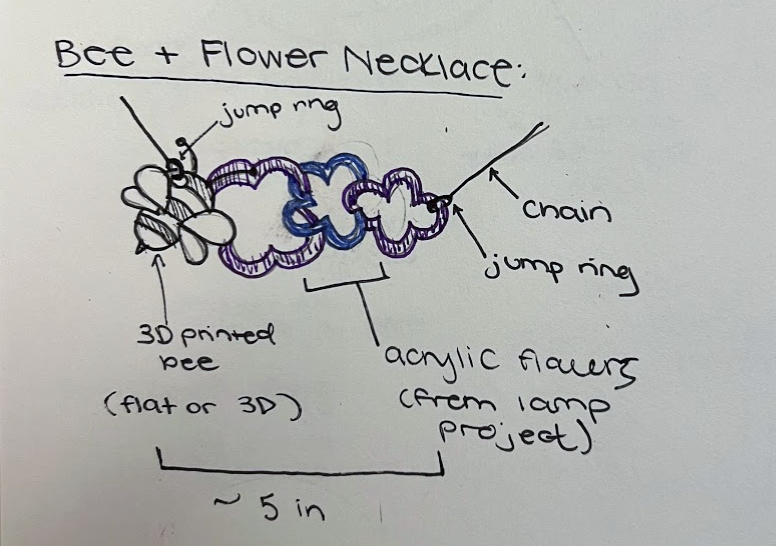 Bee + Flower Necklace:
jump ring
chain
jump ring
3D printed
bee
(flat or 3D)
acrylic flowers
(from lamp
project)
~ 5 in